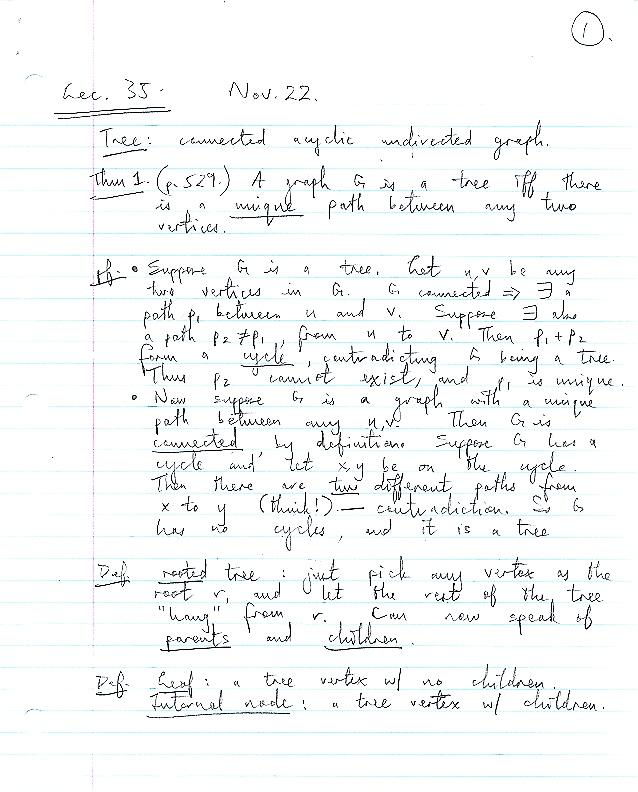 1.
Lec. 35. Nov. 22.
Tree: connected acyclic undirected graph.
Thm 1. (p. 529.) A graph G is a tree iff there
is a unique path between any two
vertices.
Pf. • Suppose G is a tree. Let u,v be any
two vertices in G. G connected ⇒ ∃ a
path p₁ between u and v. Suppose ∃ also
a path p₂ ≠ p₁, from u to v. Then p₁ + p₂
form a cycle, contradicting G being a tree.
Thus p₂ cannot exist, and p₁ is unique.
• Now suppose G is a graph with a unique
path between any u,v. Then G is
connected, by definition. Suppose G has a
cycle and let x,y be on the cycle.
Then there are two different paths from
x to y (think!) — contradiction. So G
has no cycles, and it is a tree
Def. rooted tree: just pick any vertex as the
root r, and let the rest of the tree
"hang" from r. Can now speak of
parents and children.
Def. Leaf: a tree vertex w/ no children.
Internal node: a tree vertex w/ children.